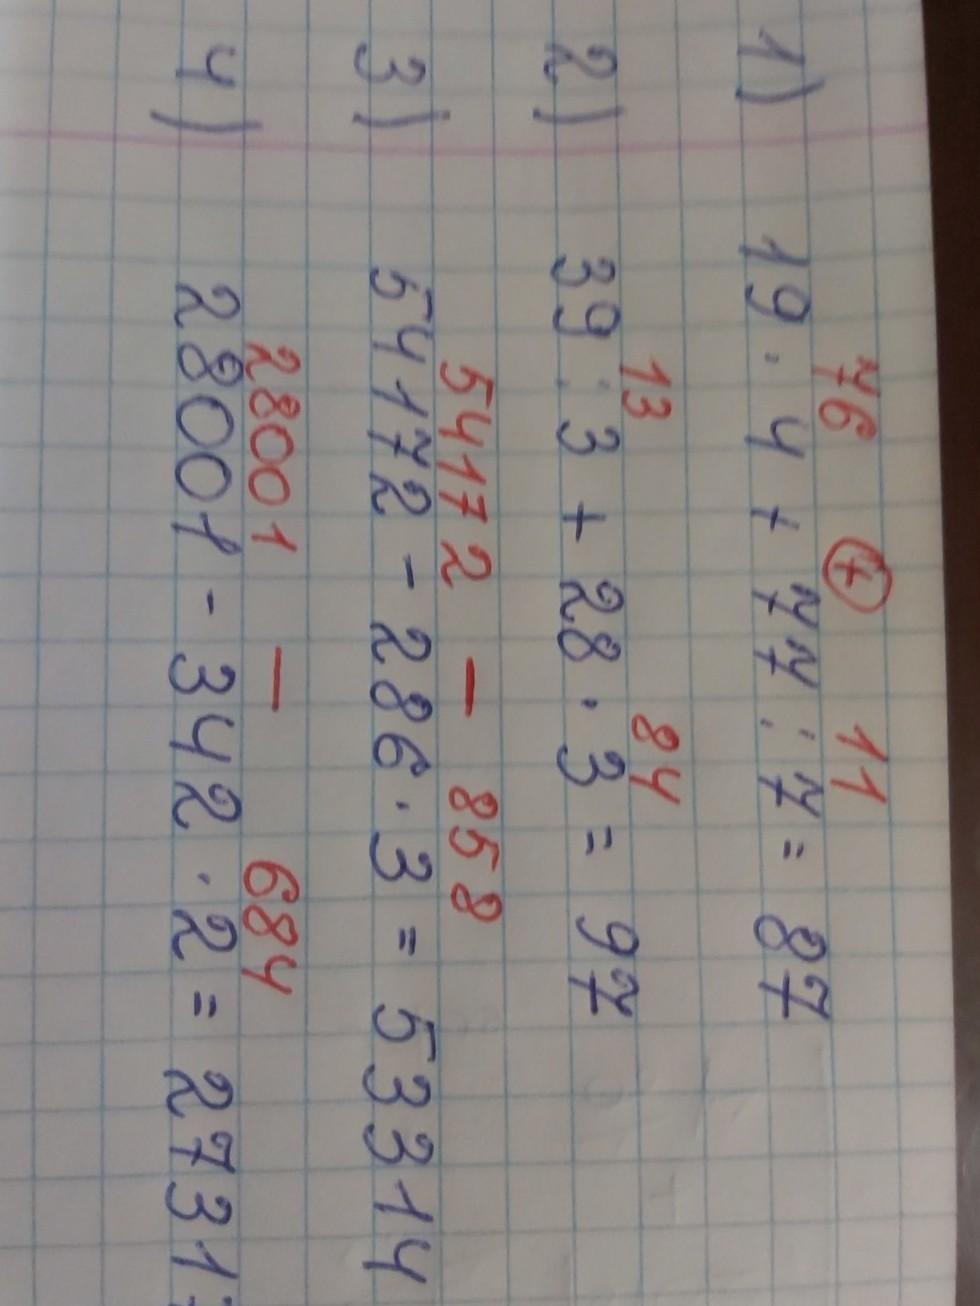 76 ⊕ 11
1) 19 · 4 + 77 : 7 = 87
13 84
2) 39 : 3 + 28 · 3 = 97
54172 — 858
3) 54172 - 286 · 3 = 53314
28001 — 684
4) 28001 - 342 · 2 = 2731